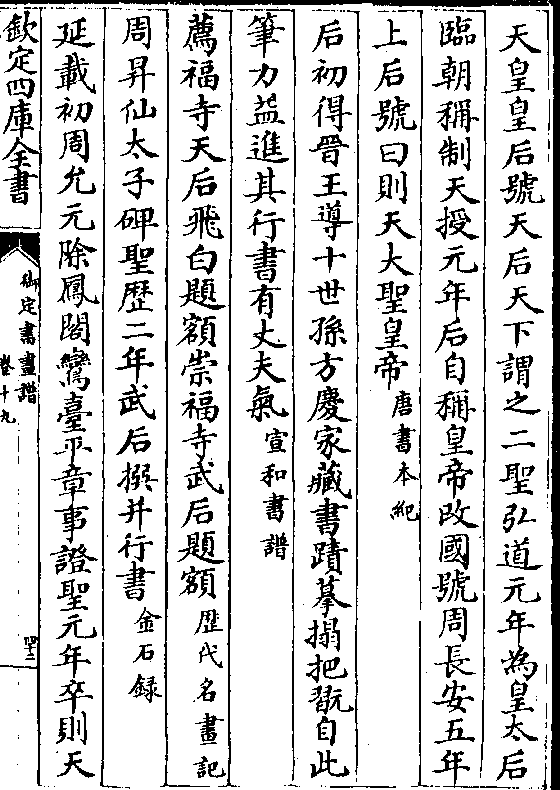 天皇皇后號天后天下謂之二聖弘道元年為皇太后
臨朝稱制天授元年后自稱皇帝改國號周長安五年
上后號曰則天大聖皇帝唐書本紀
后初得晉王導十世孫方慶家藏書蹟摹搨把翫自此
筆力益進其行書有丈夫氣宣和書譜
薦福寺天后飛白題額崇福寺武后題額歷代名畫記
周昇仙太子碑聖歷二年武后撰并行書金石録
延載初周允元除鳳閣鸞臺平章事證聖元年卒則天
欽定四庫全書
御定書畫譜
卷十九
四十二